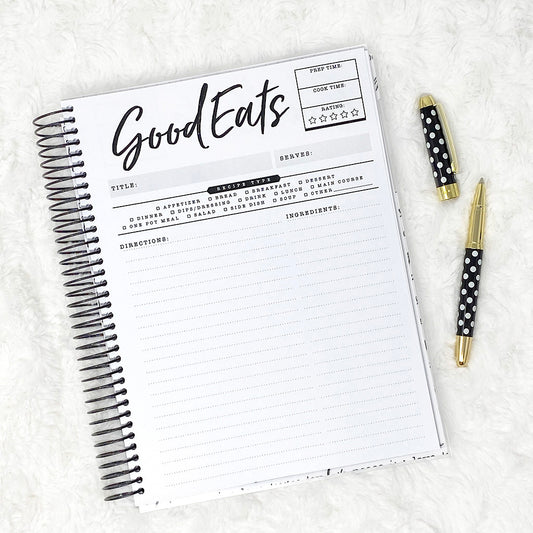 Good Eats
PREP TIME:
COOK TIME:
RATING:
TITLE:
SERVES:
RECIPE TYPE
APPETIZER BREAD BREAKFAST DESSERT
DINNER DIPS/DRESSING DRINK LUNCH MAIN COURSE
ONE POT MEAL SALAD SIDE DISH SOUP OTHER
DIRECTIONS:
INGREDIENTS: